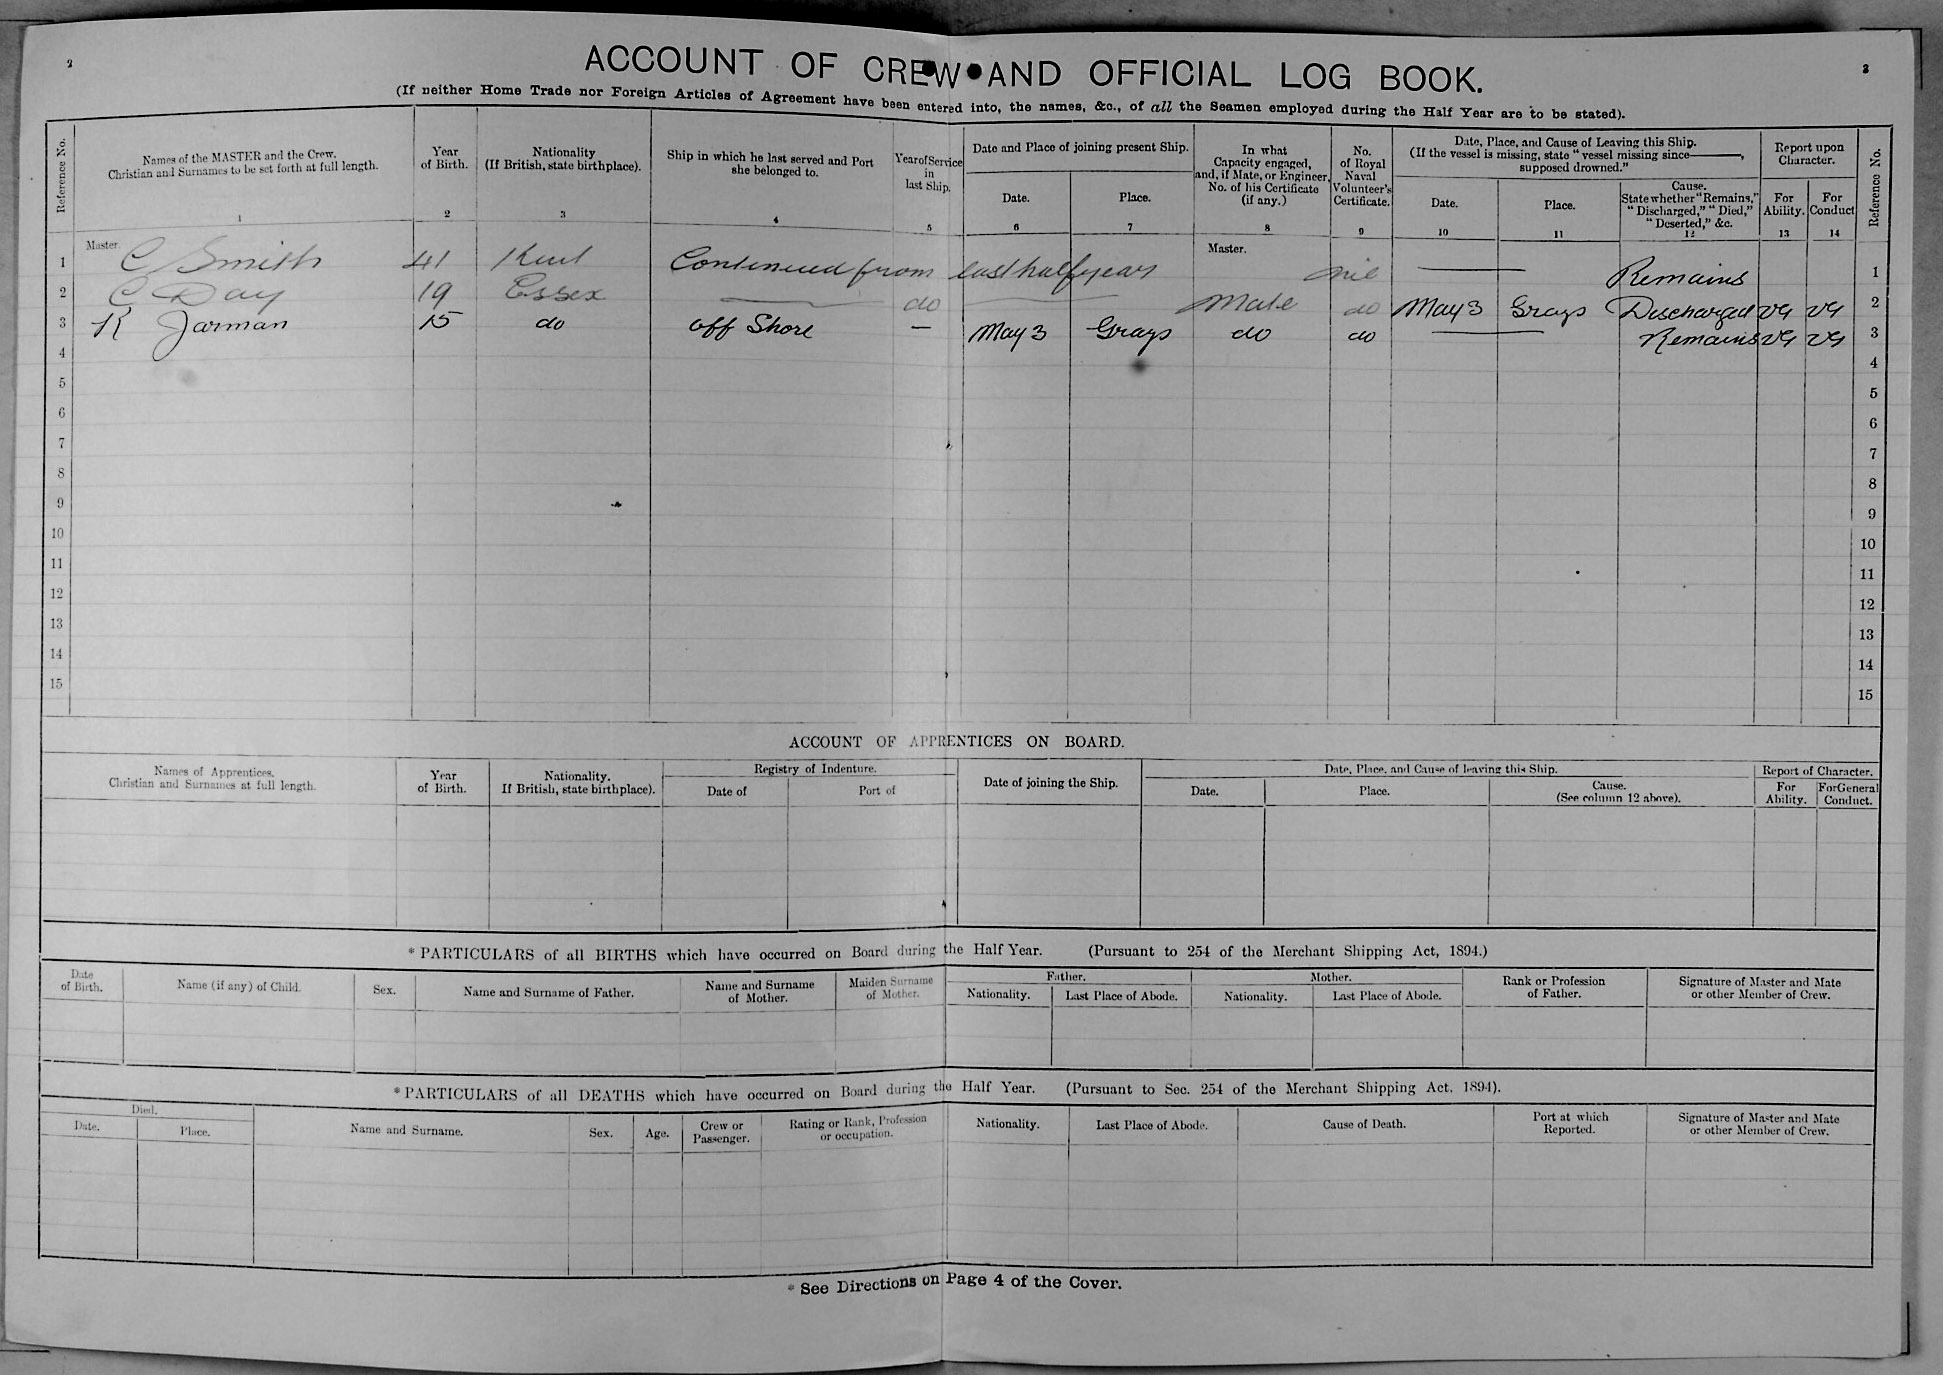 2
3
ACCOUNT OF CREW AND OFFICIAL LOG BOOK.
(If neither Home Trade nor Foreign Articles of Agreement have been entered into, the names, &c., of all the Seamen employed during the Half Year are to be stated).
Reference No.
Names of the MASTER and the Crew.
Christian and Surnames to be set forth at full length.
1
Year
of Birth.
2
Nationality
(If British, state birthplace).
3
Ship in which he last served and Port
she belonged to.
4
Year of Service
in
last Ship.
5
Date and Place of joining present Ship.
Date.
6
Place.
7
In what
Capacity engaged,
and, if Mate, or Engineer,
No. of his Certificate
(if any.)
8
No.
of Royal
Naval
Volunteer's
Certificate.
9
Date, Place, and Cause of Leaving this Ship.
(If the vessel is missing, state "vessel missing since———,
supposed drowned."
Date.
10
Place.
11
Cause.
State whether "Remains,"
"Discharged," "Died,"
"Deserted," &c.
12
Report upon
Character.
For
Ability.
13
For
Conduct
14
Reference No.
1 Master. C Smith 41 Kent Continued from last half year Master. nil Remains 1
2 C Day 19 Essex do Mate do May 3 Grays Discharged VG VG 2
3 R Jarman 15 do off Shore — May 3 Grays do do Remains VG VG 3
4 4
5 5
6 6
7 7
8 8
9 9
10 10
11 11
12 12
13 13
14 14
15 15
ACCOUNT OF APPRENTICES ON BOARD.
Names of Apprentices.
Christian and Surnames at full length.
Year
of Birth.
Nationality.
If British, state birthplace).
Registry of Indenture.
Date of
Port of
Date of joining the Ship.
Date, Place, and Cause of leaving this Ship.
Date.
Place.
Cause.
(See column 12 above).
Report of Character.
For
Ability.
For General
Conduct.
* PARTICULARS of all BIRTHS which have occurred on Board during the Half Year. (Pursuant to 254 of the Merchant Shipping Act, 1894.)
Date
of Birth.
Name (if any) of Child.
Sex.
Name and Surname of Father.
Name and Surname
of Mother.
Maiden Surname
of Mother.
Father.
Nationality.
Last Place of Abode.
Mother.
Nationality.
Last Place of Abode.
Rank or Profession
of Father.
Signature of Master and Mate
or other Member of Crew.
* PARTICULARS of all DEATHS which have occurred on Board during the Half Year. (Pursuant to Sec. 254 of the Merchant Shipping Act, 1894).
Died.
Date.
Place.
Name and Surname.
Sex.
Age.
Crew or
Passenger.
Rating or Rank, Profession
or occupation.
Nationality.
Last Place of Abode.
Cause of Death.
Port at which
Reported.
Signature of Master and Mate
or other Member of Crew.
* See Directions on Page 4 of the Cover.